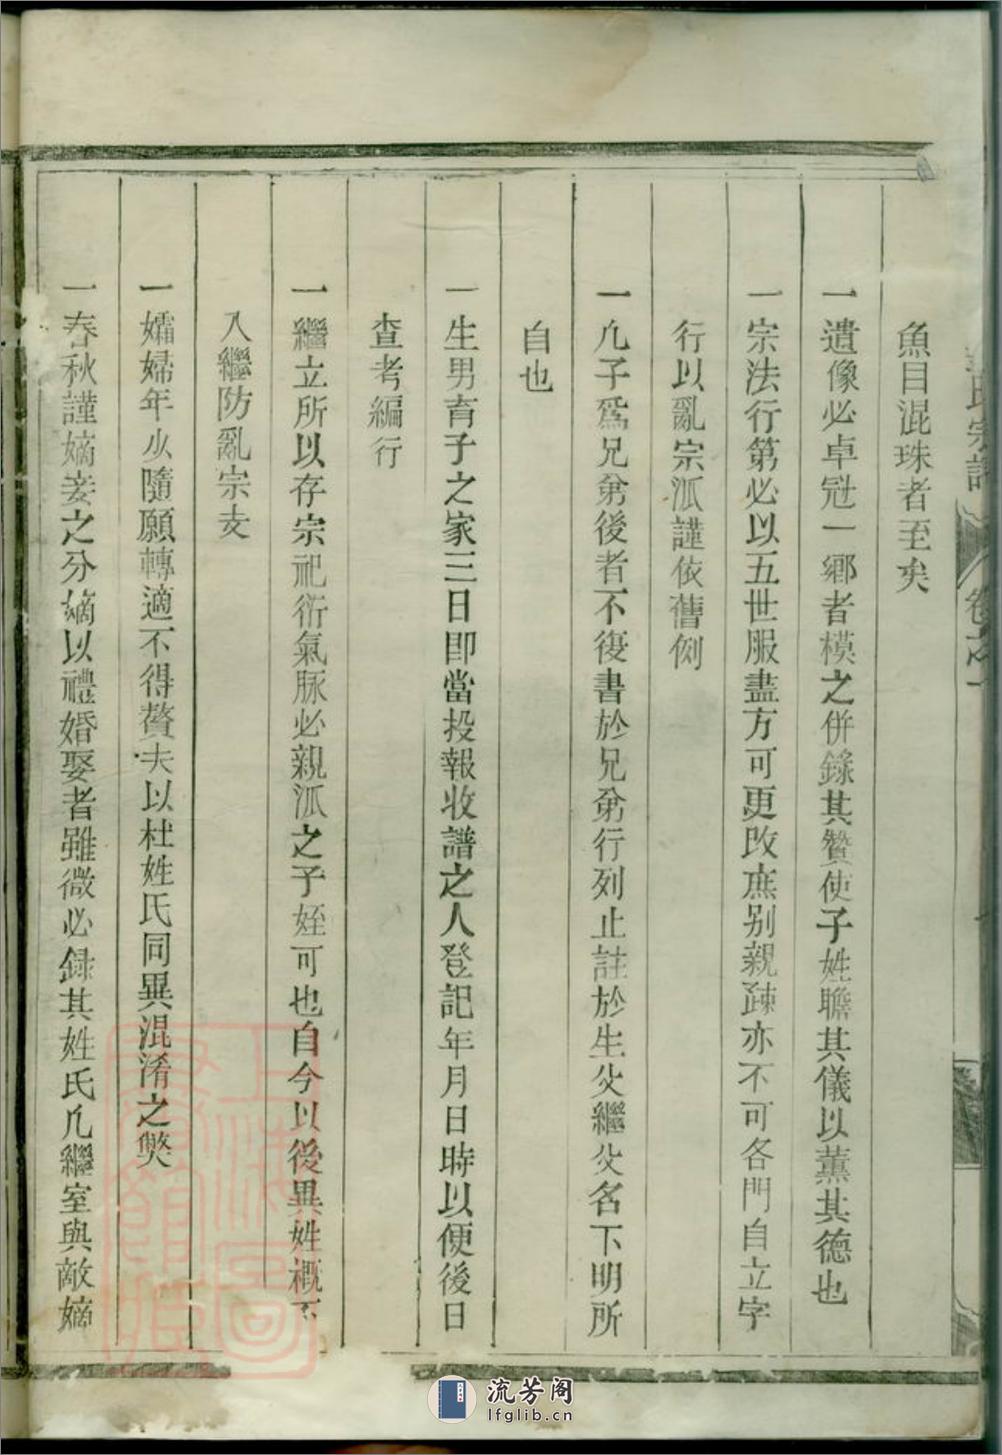 魚目混珠者至矣
一遺像必卓冠一鄉者模之併錄其贊使子姓瞻其儀以薰其德也
一宗法行第必以五世服盡方可更改庶别親疎亦不可各門自立字
行以亂宗派謹依舊例
一凢子爲兄弟後者不復書於兄弟行列止註於生父繼父名下明所
自也
一生男育子之家三日即當投報收譜之人登記年月日時以便後日
查考編行
一繼立所以存宗祀衍氣脉必親派之子姪可也自今以後異姓概不
入繼防亂宗支
一孀婦年少隨願轉適不得贅夫以杜姓氏同異混淆之獘
一春秋謹嫡妾之分嫡以禮婚娶者雖微必録其姓氏凢繼室與敵嫡
氏宗譜
卷之一
上海圖書館藏
流芳阁
lfglib.cn